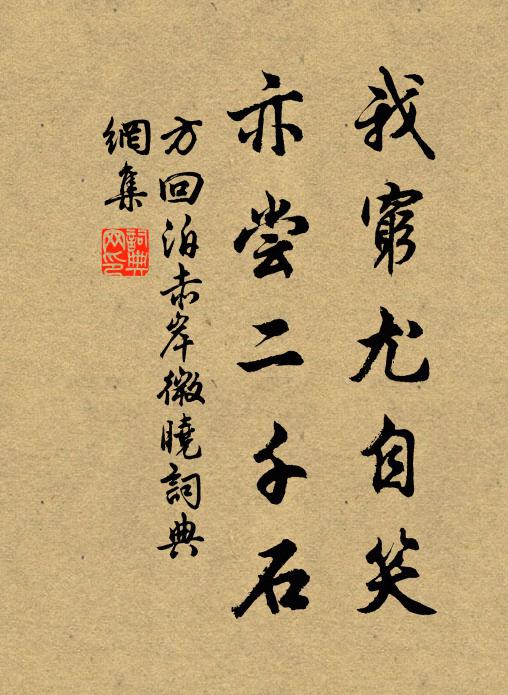 我窮尤自笑
亦嘗二千石
方回泊赤岸微曉詞典
網集
詞典網印